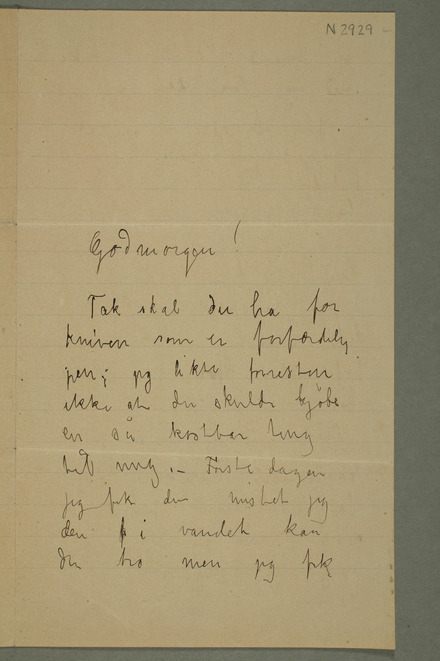 N 2929
Godmorgen!
Tak skal du ha for
kniven som er forfærdelig
pen; jeg likte forresten
ikke at du skulde kjøbe
en så kostbar ting
til mig. – Første dagen
jeg fik den mistet jeg
den i vandet kan
du tro men jeg fik